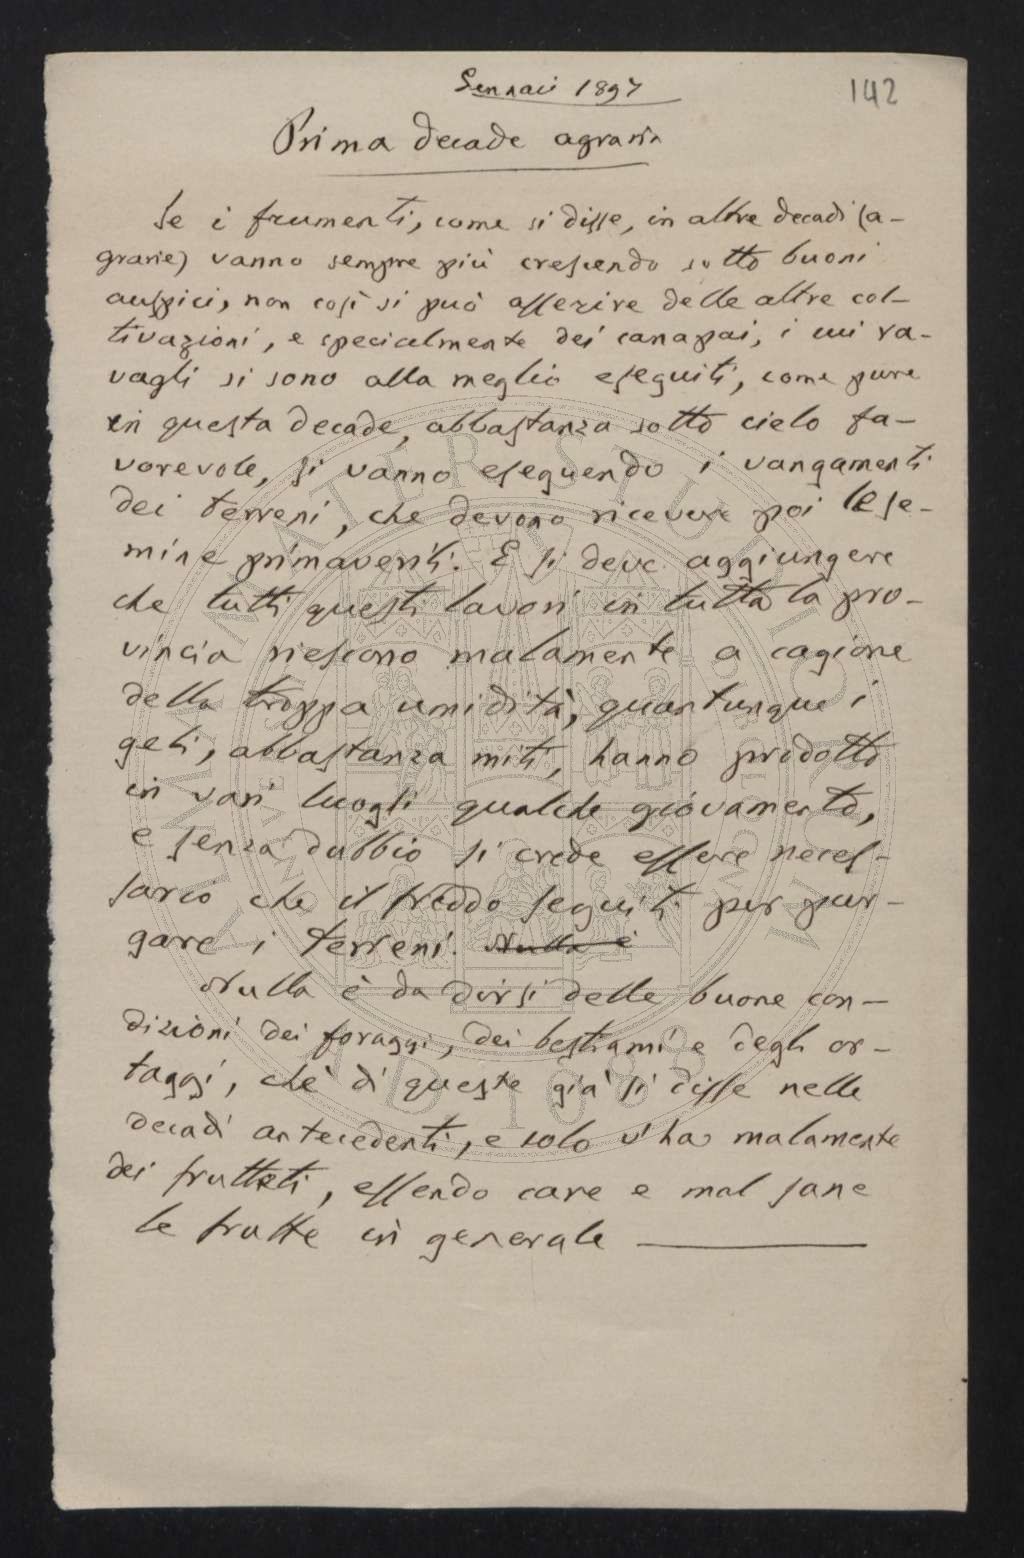 Gennaio 1897
142
Prima decade agraria
Se i frumenti, come si disse, in altre decadi (a-
grarie) vanno sempre più crescendo sotto buoni
auspici, non così si può asserire delle altre col-
tivazioni, e specialmente dei canapai, i cui ra-
vagli si sono alla meglio eseguiti, come pure
in questa decade, abbastanza sotto cielo fa-
vorevole, si vanno eseguendo i vangamenti
dei terreni, che devono ricevere poi le se-
mine primaverili. E si deve aggiungere
che tutti questi lavori in tutta la pro-
vincia riescono malamente a cagione
della troppa umidità, quantunque i
geli, abbastanza miti, hanno prodotto
in vari luoghi qualche giovamento,
e senza dubbio si crede essere neces-
sario che il freddo seguiti per pur-
gare i terreni. Nulla è
Nulla è da dirsi delle buone con-
dizioni dei foraggi, dei bestiami e degli or-
taggi, chè di queste già si disse nelle
decadi antecedenti, e solo v'ha malamente
dei frutteti, essendo care e mal sane
le frutte in generale
ALMA MATER STUDIORUM
A.D. 1088